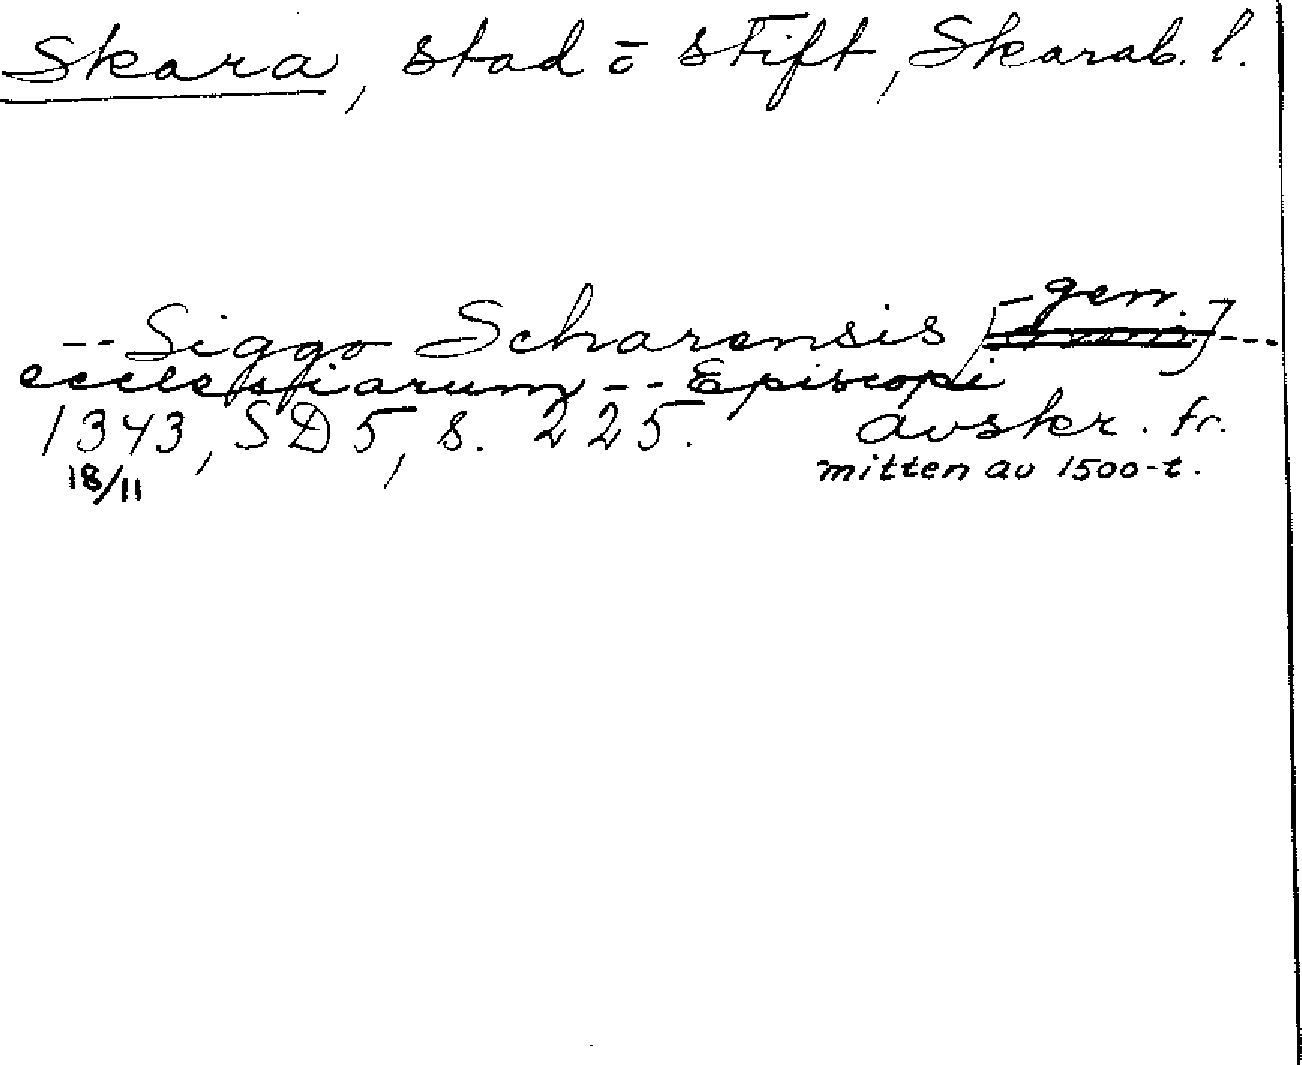 Skara, stad o stift, Skarab. l.
-- Siggo Scharensis [-gen.] ---
ecclesiarum -- Episcopi
1343, SD 5, s. 225. avskr. fr.
18/11 mitten av 1500-t.